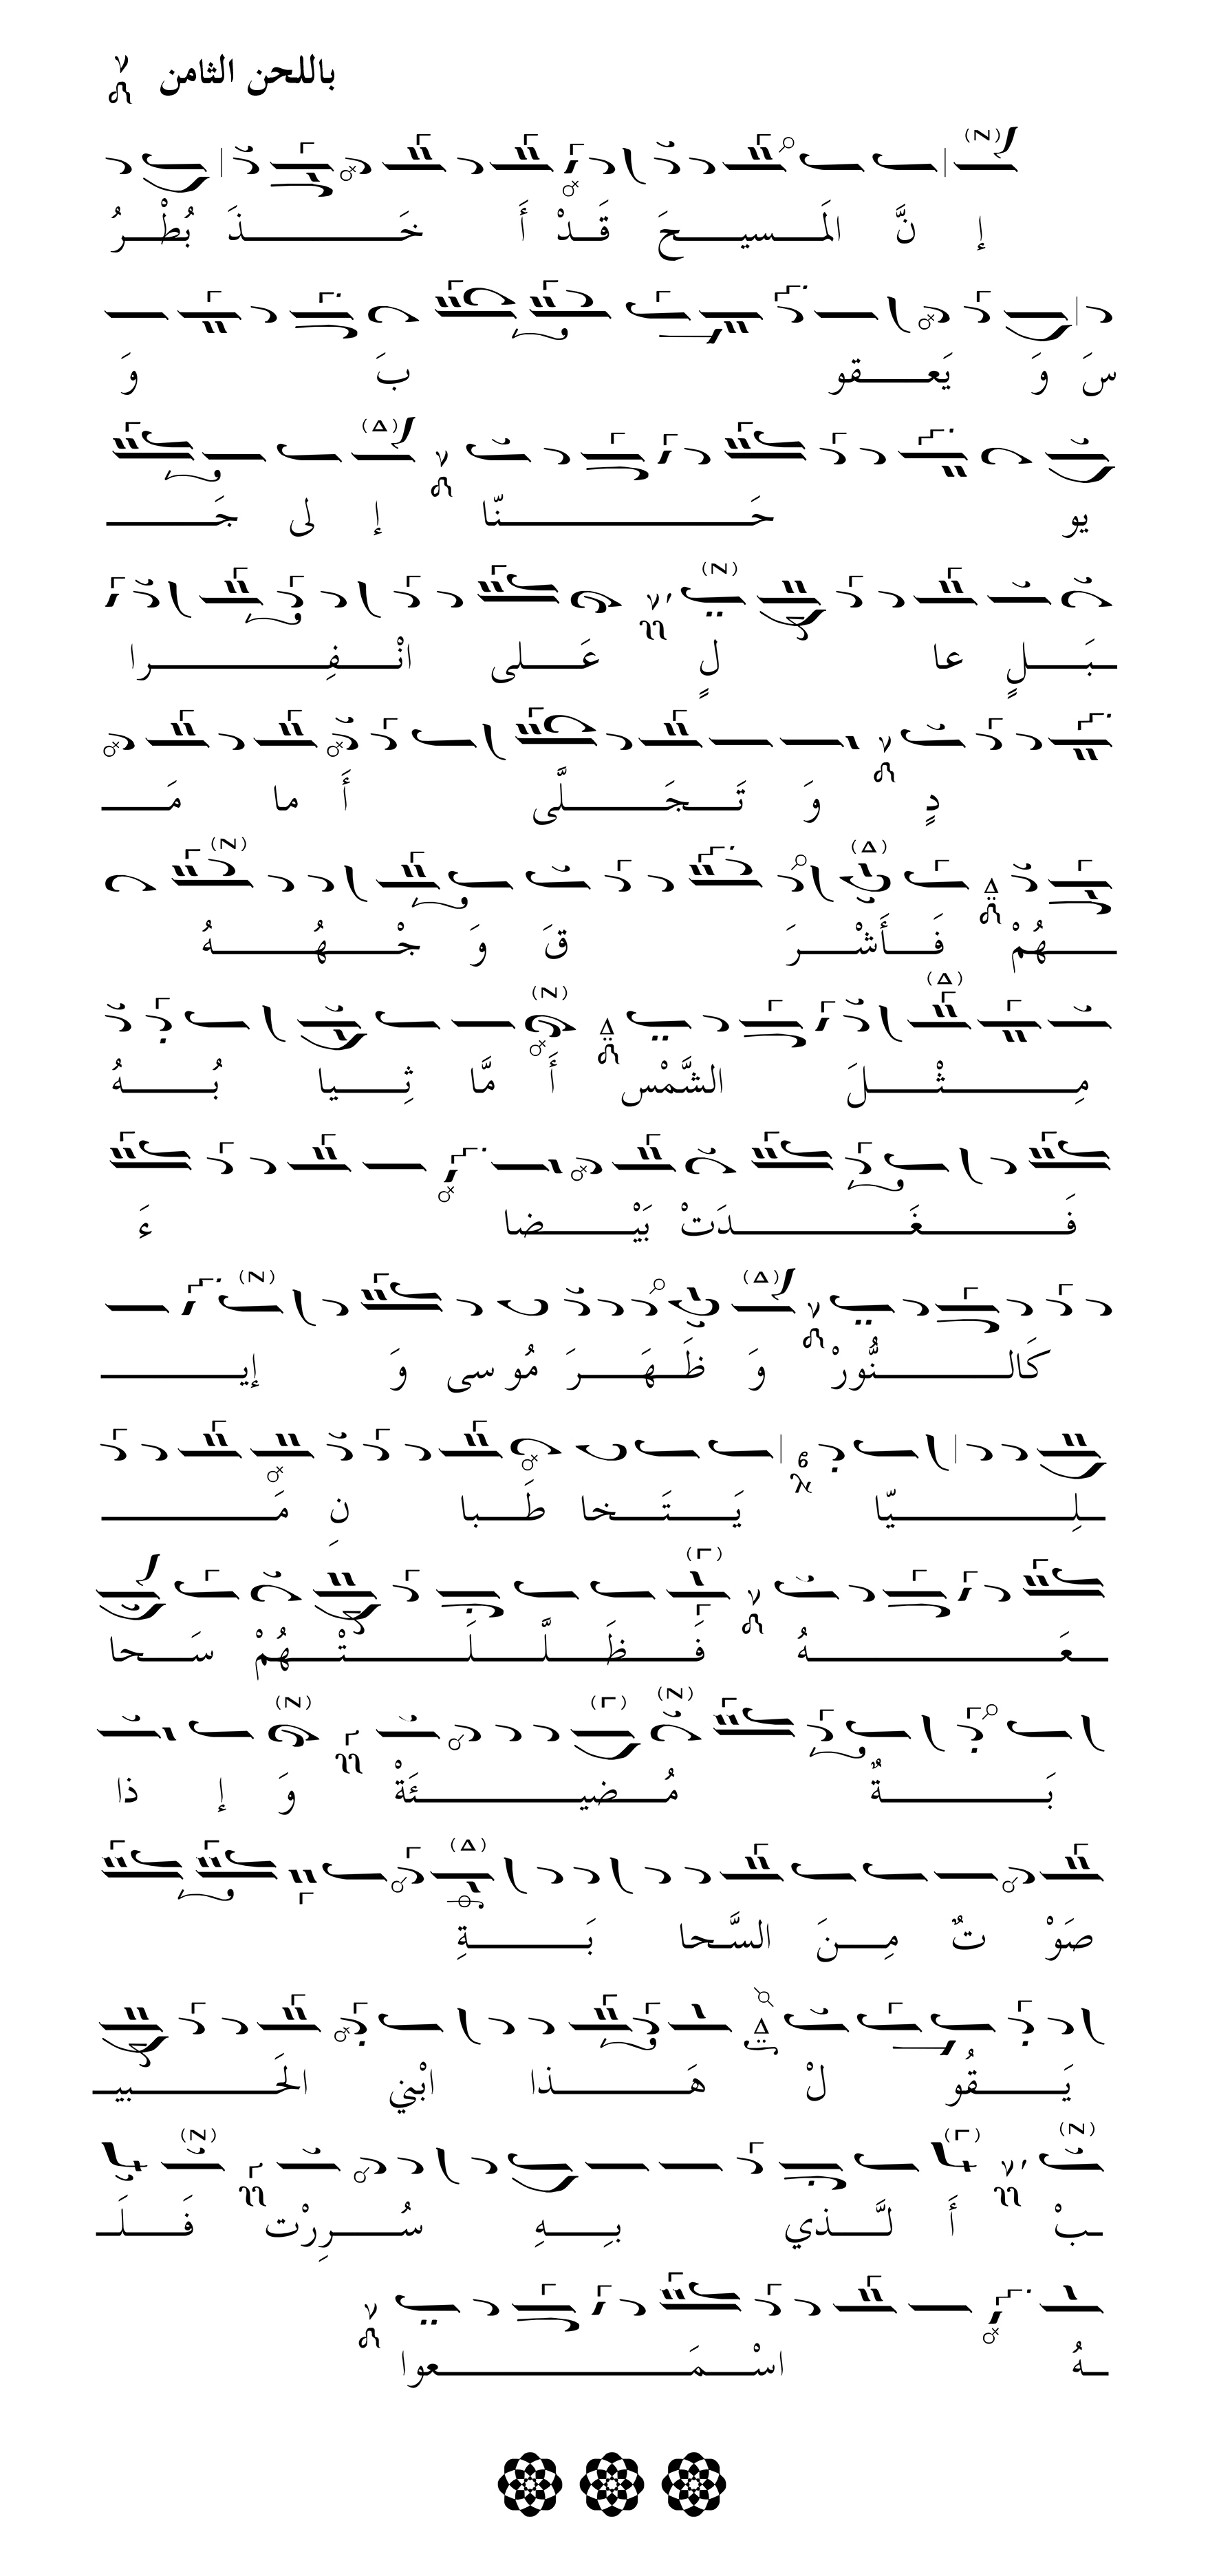 باللحن الثامن
إنَّ المَسيحَ قَدْ أَخَذَ بُطْرُ
سَ وَيَعقوبَ وَ
يوحَنّا إلى جَـ
ـبَلٍ عالٍ عَلى انْفِرا
دٍ وَتَجَلَّى أَما مَـ
ـهُمْ فَأَشْرَقَ وَجْهُهُ
مِثْلَ الشَّمْس أَمَّا ثِيابُهُ
فَغَدَتْ بَيْضاءَ
كَالنُّورْ وَظَهَرَ مُوسى وَإيـ
ـلِيّا يَتَخاطَبانِ مَـ
ـعَهُ فَظَلَّلَتْهُمْ سَحا
بَةٌ مُضيئَةْ وَإذا
صَوْتٌ مِنَ السَّحابَةِ
يَقُولْ هَذا ابْني الحَبيـ
ـبْ أَلَّذي بِهِ سُرِرْت فَلَـ
ـهُ اسْمَعوا